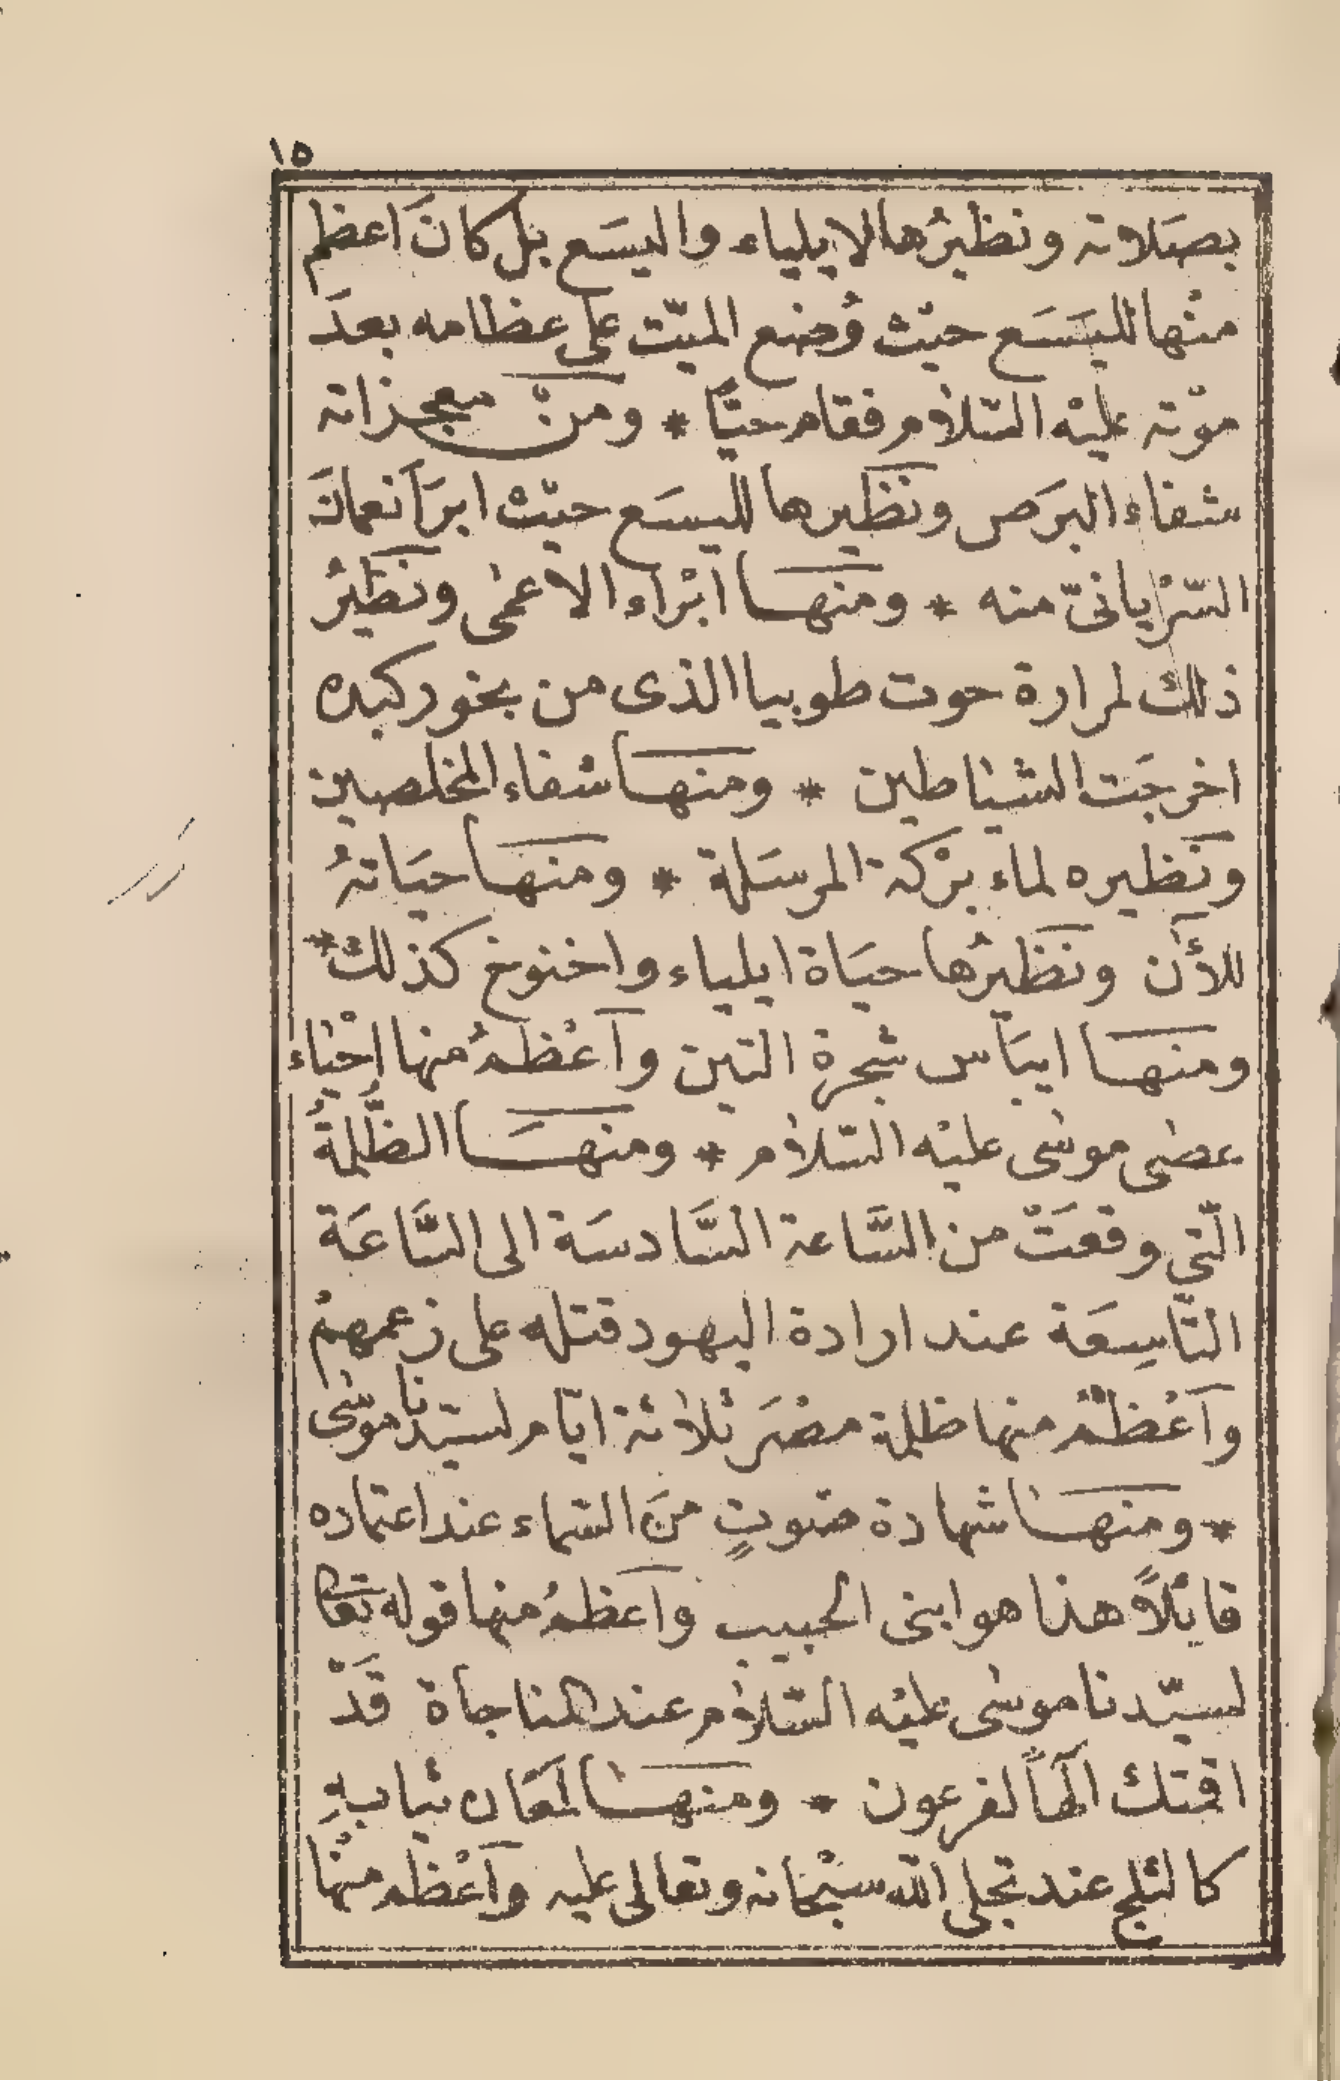 ١٥
بصَلاته ونظيرُها لايلياء واليسَع بل كانَ اعظم
منْها لليَسَع حيْث وُضع الميّت على عظامه بعدَ
موْته عليْه السّلام فقام حيًّا * ومنْ معجزاته
شفاء البرَص ونَظيرها لليسَع حيْث ابرَا نعمانَ
السّرْيانىّ منه * ومنها ابْراء الاعمٰى ونَظيرُ
ذلك لمرارة حوت طوبيا الذى من بخور كبده
اخرجَت الشياطين * ومنها شفاء المخلصين
ونَظيره لماء برْكة المرسَلة * ومنها حيَاتهُ
للأن ونَظيرُها حيَاة ايلياء واخنوخ كذلك *
ومنها ايبَاس شجرة التين وآعْظمُ منها احْياء
عصٰى موسٰى عليْه السّلام * ومنهَا الظُّلمةُ
الّتي وقعَتْ من السَّاعة السَّادسَة الى السَّاعَة
التَّاسِعَة عند ارادة اليهود قتله على زعمهمْ
وآعْظمُ منها ظلمة مصْرَ ثلاثة ايّام لسيّدنا موسٰى
* ومنها شهادة صَوتٍ منَ السّماء عند اعتماده
قائلاً هذا هو ابنى الحبيب وآعظمُ منها قوله تعالى
لسيّدنا موسٰى عليْه السّلام عند المناجاة قَدْ
اقمتك الٰهاً لفرعون * ومنها لمَعَان ثيابهِ
كالثلج عند تجلى اللّه سبْحانه وتعالى عليه وآعْظم منْها